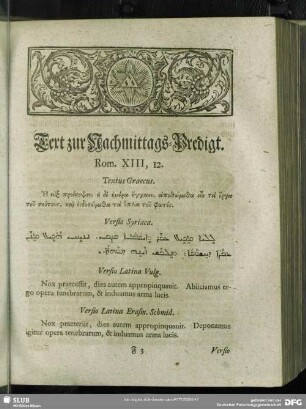 Text zur Nachmittags-Predigt.
Rom. XIII, 12.
Textus Graecus.
Ἡ νὺξ προέκοψεν, ἡ δὲ ἡμέρα ἤγγικεν. ἀποθώμεθα οὖν τὰ ἔργα
τοῦ σκότους, καὶ ἐνδυσώμεθα τὰ ὅπλα τοῦ φωτός.
Versio Syriaca.
Versio Latina Vulg.
Nox præcessit, dies autem appropinquavit. Abiiciamus er-
go opera tenebrarum, & induamus arma lucis.
Versio Latina Erasm. Schmid.
Nox præteriit, dies autem appropinquavit. Deponamus
igitur opera tenebrarum, & induamus arma lucis.
Versio
SLUB